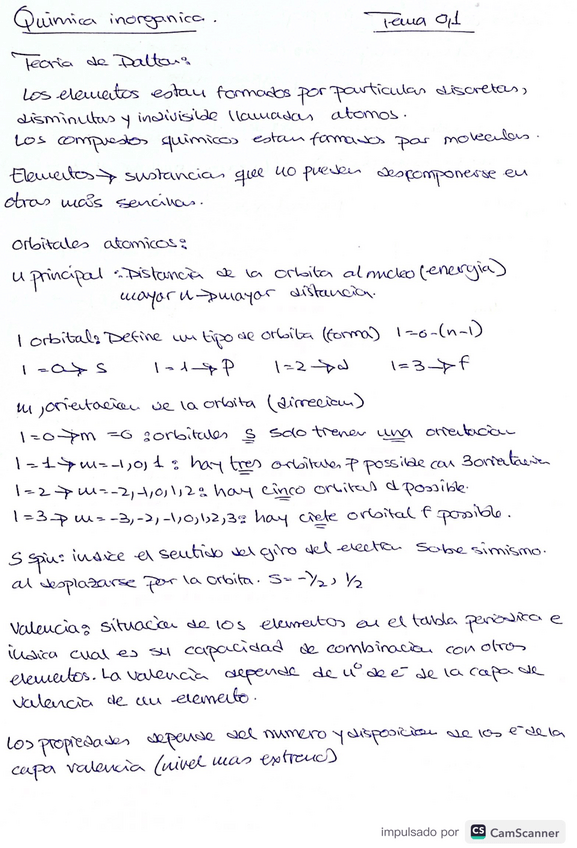 Quimica inorganica.
Tema 0,1
Teoria de Dalton:
Los elementos estan formados por particulas discretas,
disminutas y indivisible llamadas atomos.
Los compuestos quimicos estan formados por moleculas.
Elementos → sustancias que no pueden descomponerse en
otras más sencillas.
orbitales atomicos:
n principal : Distancia de la orbita al nucleo (energia)
mayor n → mayor distancia.
l orbital: Define un tipo de orbita (forma) l=0-(n-1)
l=0→s l=1→p l=2→d l=3→f
m, orientacion de la orbita (direccion)
l=0→m=0 : orbitales s solo tienen una orientacion
l=1→m=-1,0,1 : hay tres orbitales p possible con 3 orientacion
l=2→m=-2,-1,0,1,2: hay cinco orbitas d possible.
l=3→m=-3,-2,-1,0,1,2,3: hay ciete orbital f possible.
S spin: indice el sentido del giro del electron sobre simismo.
al desplazarse por la orbita. S=-1/2, 1/2
Valencia: situacion de los elementos en el tabla periodica e
indica cual es su capacidad de combinacion con otros
elementos. La valencia depende de nº de e⁻ de la capa de
valencia de un elemento.
Los propiedades depende del numero y disposicion de los e⁻ de la
capa valencia (nivel mas externo)
impulsado por CS CamScanner